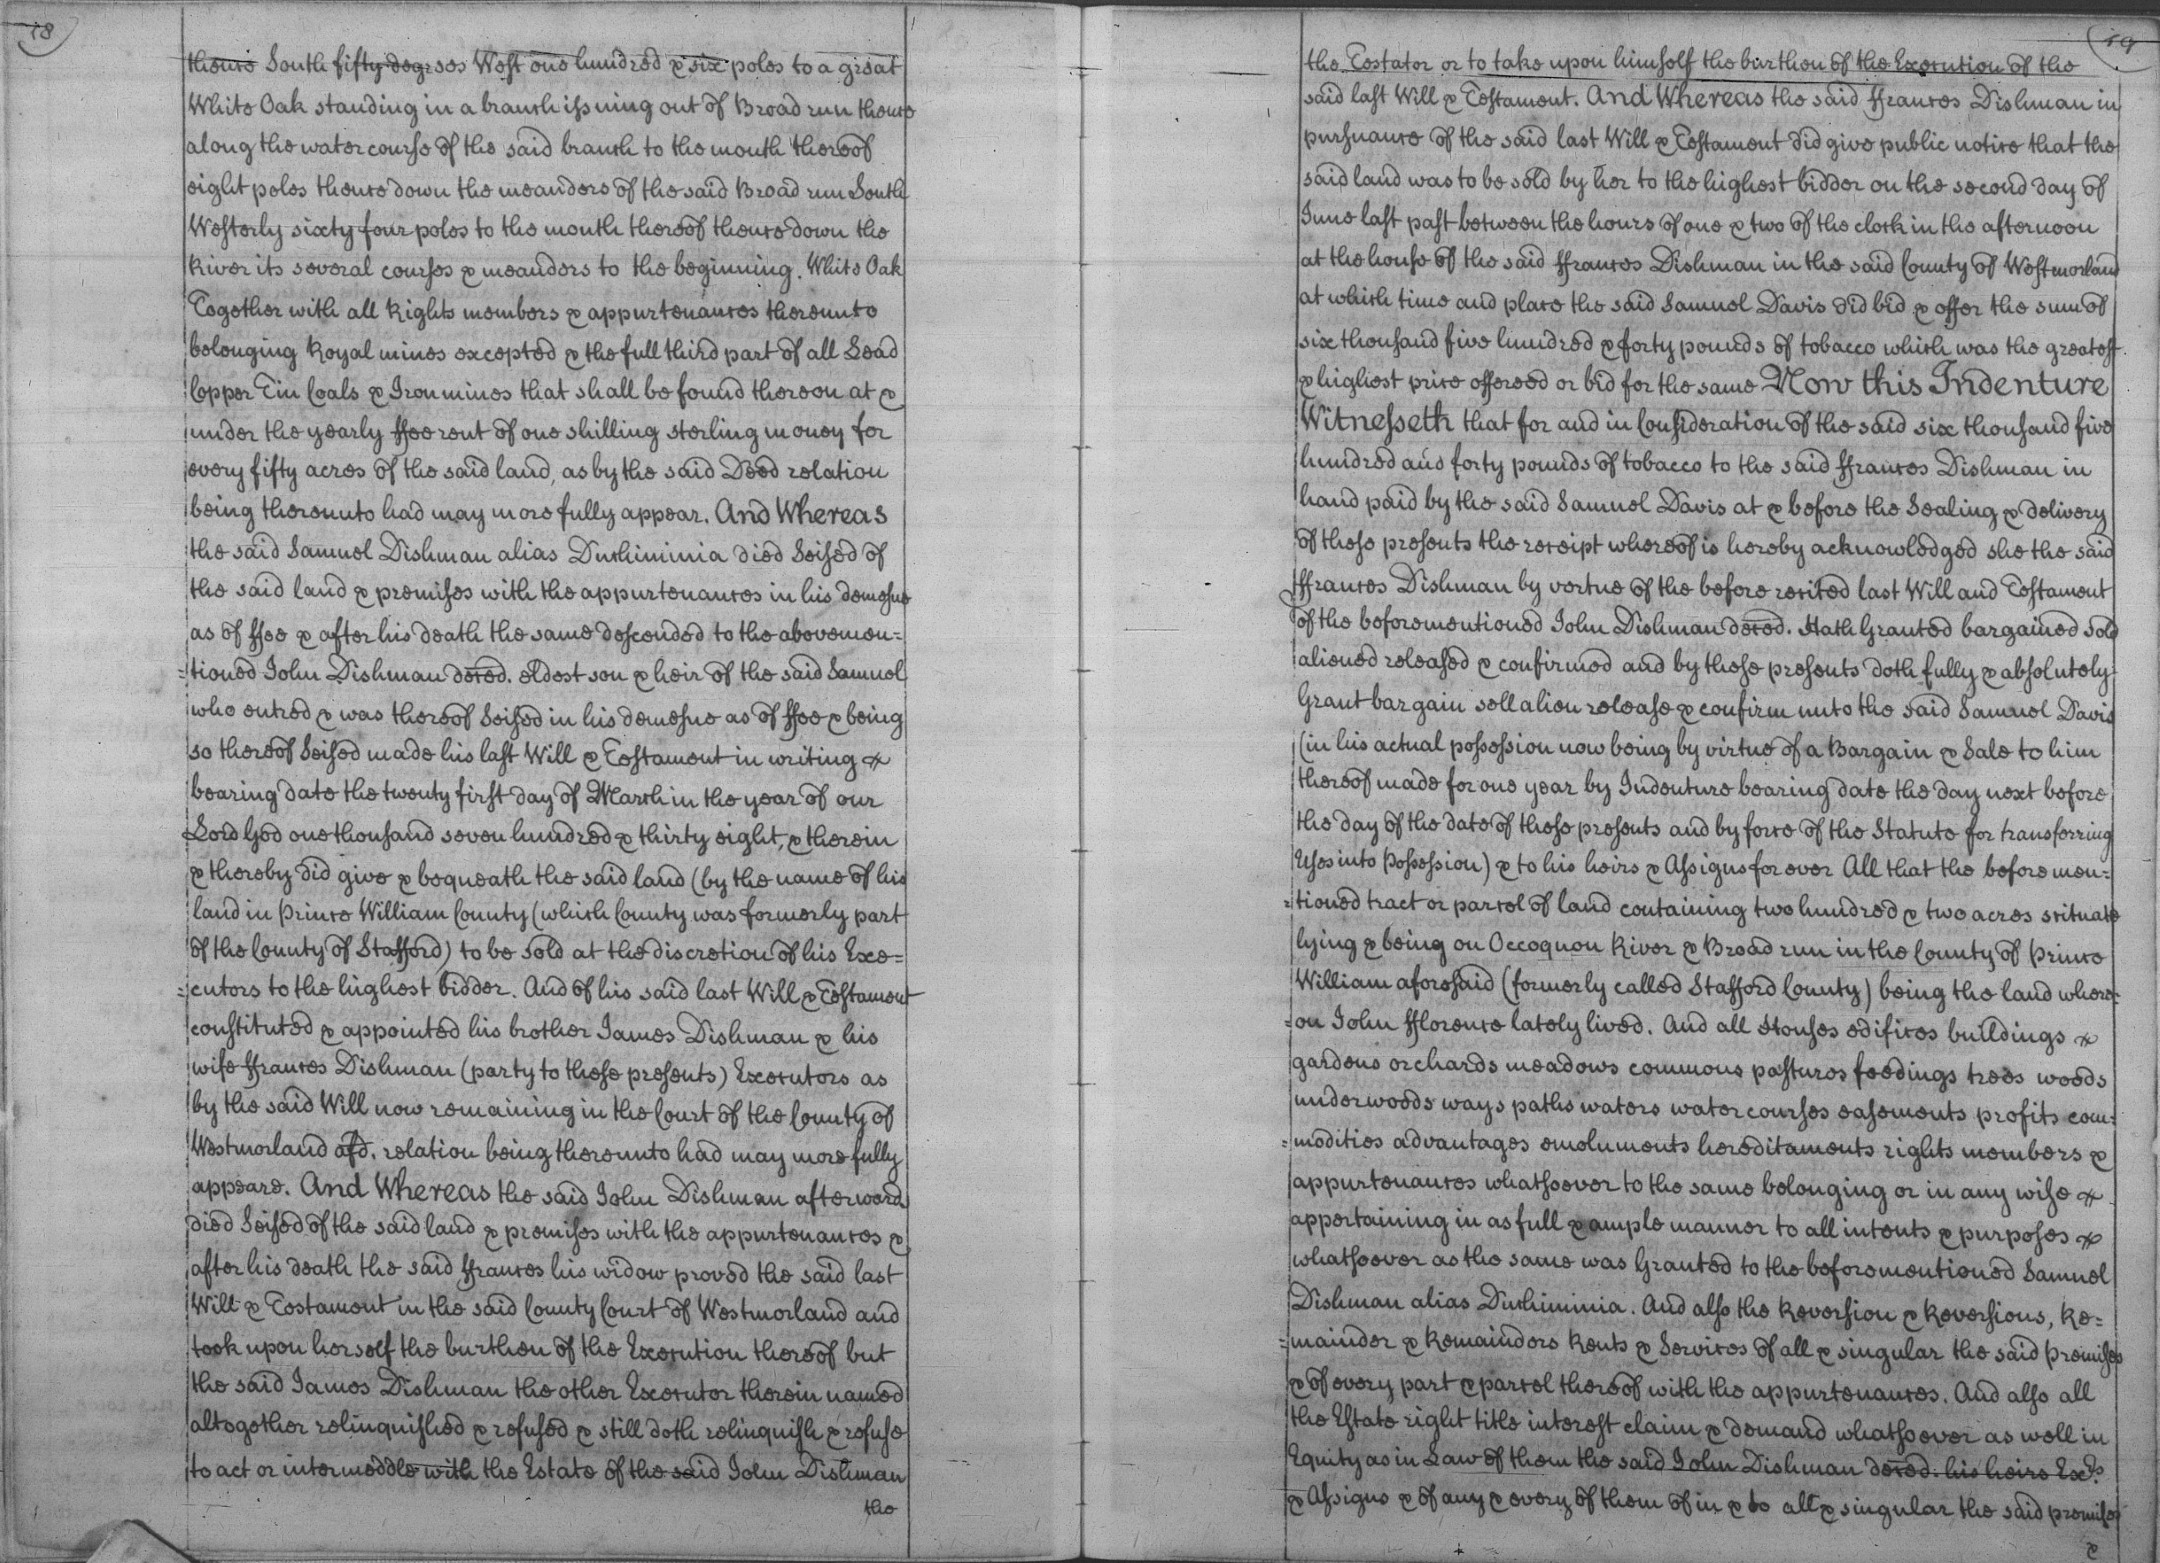 18
thence South fifty degrees West one hundred & six poles to a great
White Oak standing in a branch issuing out of Broad run thence
along the water course of the said branch to the mouth thereof
eight poles thence down the meanders of the said Broad run South
Westerly sixty four poles to the mouth thereof thence down the
River its several courses & meanders to the beginning. White Oak
Together with all Rights members & appurtenances thereunto
belonging Royal mines excepted & the full third part of all Lead
Copper Tin Coals & Iron mines that shall be found thereon at &
under the yearly ffee rent of one shilling sterling money for
every fifty acres of the said land, as by the said Deed relation
being thereunto had may more fully appear. And Whereas
the said Samuel Dishman alias Duchiminia died Seised of
the said land & premises with the appurtenances in his demesne
as of ffee & after his death the same descended to the abovemen=
=tioned John Dishman deced. eldest son & heir of the said Samuel
who entred & was thereof Seised in his demesne as of ffee & being
so thereof Seised made his last Will & Testament in writing &
bearing date the twenty first day of March in the year of our
Lord God one thousand seven hundred & thirty eight, & therein
& thereby did give & bequeath the said land (by the name of his
land in Prince William County (which County was formerly part
of the County of Stafford) to be sold at the discretion of his Exe=
=cutors to the highest bidder. And of his said last Will & Testament
constituted & appointed his brother James Dishman & his
wife ffrances Dishman (party to these presents) Executors as
by the said Will now remaining in the Court of the County of
Westmorland afd. relation being thereunto had may more fully
appeare. And Whereas the said John Dishman afterwards
died Seised of the said land & premises with the appurtenances &
after his death the said ffrances his widow proved the said last
Will & Testament in the said County Court of Westmorland and
took upon herself the burthen of the Execution thereof but
the said James Dishman the other Executor therein named
altogether relinquished & refused & still doth relinquish & refuse
to act or intermeddle with the Estate of the said John Dishman
the
19
the Testator or to take upon himself the burthen of the Execution of the
said last Will & Testament. And Whereas the said ffrances Dishman in
pursuance of the said last Will & Testament did give public notice that the
said land was to be sold by her to the highest bidder on the second day of
June last past between the hours of one & two of the clock in the afternoon
at the house of the said ffrances Dishman in the said County of Westmorland
at which time and place the said Samuel Davis did bid & offer the sum of
six thousand five hundred & forty pounds of tobacco which was the greatest
& highest price offered or bid for the same Now this Indenture
Witnesseth that for and in Consideration of the said six thousand five
hundred and forty pounds of tobacco to the said ffrances Dishman in
hand paid by the said Samuel Davis at & before the Sealing & delivery
of these presents the receipt whereof is hereby acknowledged she the said
ffrances Dishman by vertue of the before recited last Will and Testament
of the beforementioned John Dishman deced. Hath Granted bargained sold
aliened released & confirmed and by these presents doth fully & absolutely
Grant bargain sell alien release & confirm unto the said Samuel Davis
(in his actual possession now being by virtue of a Bargain & Sale to him
thereof made for one year by Indenture bearing date the day next before
the day of the date of these presents and by force of the Statute for transferring
Uses into Possession) & to his heirs & Assigns for ever All that the before men=
=tioned tract or parcel of land containing two hundred & two acres scituate
lying & being on Occoquon River & Broad run in the County of Prince
William aforesaid (formerly called Stafford County) being the land where=
=on John fflorence lately lived. And all Houses edifices buildings &
gardens orchards meadows commons pastures feedings trees woods
underwoods ways paths waters water courses easements profits com=
=modities advantages emoluments hereditaments rights members &
appurtenances whatsoever to the same belonging or in any wise &
appertaining in as full & ample manner to all intents & purposes &
whatsoever as the same was Granted to the beforementioned Samuel
Dishman alias Duchiminia. And also the Reversion & Reversions, Re=
=mainder & Remainders Rents & Services of all & singular the said Premises
& of every part & parcel thereof with the appurtenances. And also all
the Estate right title interest claim & demand whatsoever as well in
Equity as in Law of them the said John Dishman deced. his heirs Exrs
& Assigns & of any & every of them of in & to all & singular the said premises
&